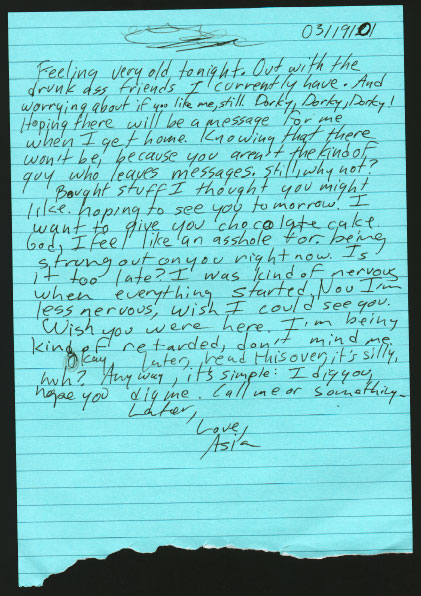 03/19/01
Feeling very old tonight. Out with the
drunk ass friends I currently have. And
worrying about if you like me, still. Dorky, Dorky, Dorky!
Hoping there will be a message for me
when I get home. Knowing that there
won't be, because you aren't the kind of
guy who leaves messages. Still, why not?
Bought stuff I thought you might
like. hoping to see you tomorrow. I
want to give you chocolate cake.
God, I feel like an asshole for being
strung out on you right now. Is
it too late? I was kind of nervous
when everything started, Now I'm
less nervous, wish I could see you.
Wish you were here. I'm being
kind of retarded, don't mind me.
Okay later, read this over, it's silly,
huh? Anyway, it's simple: I dig you,
hope you dig me. Call me or something.
Later,
Love,
Asia